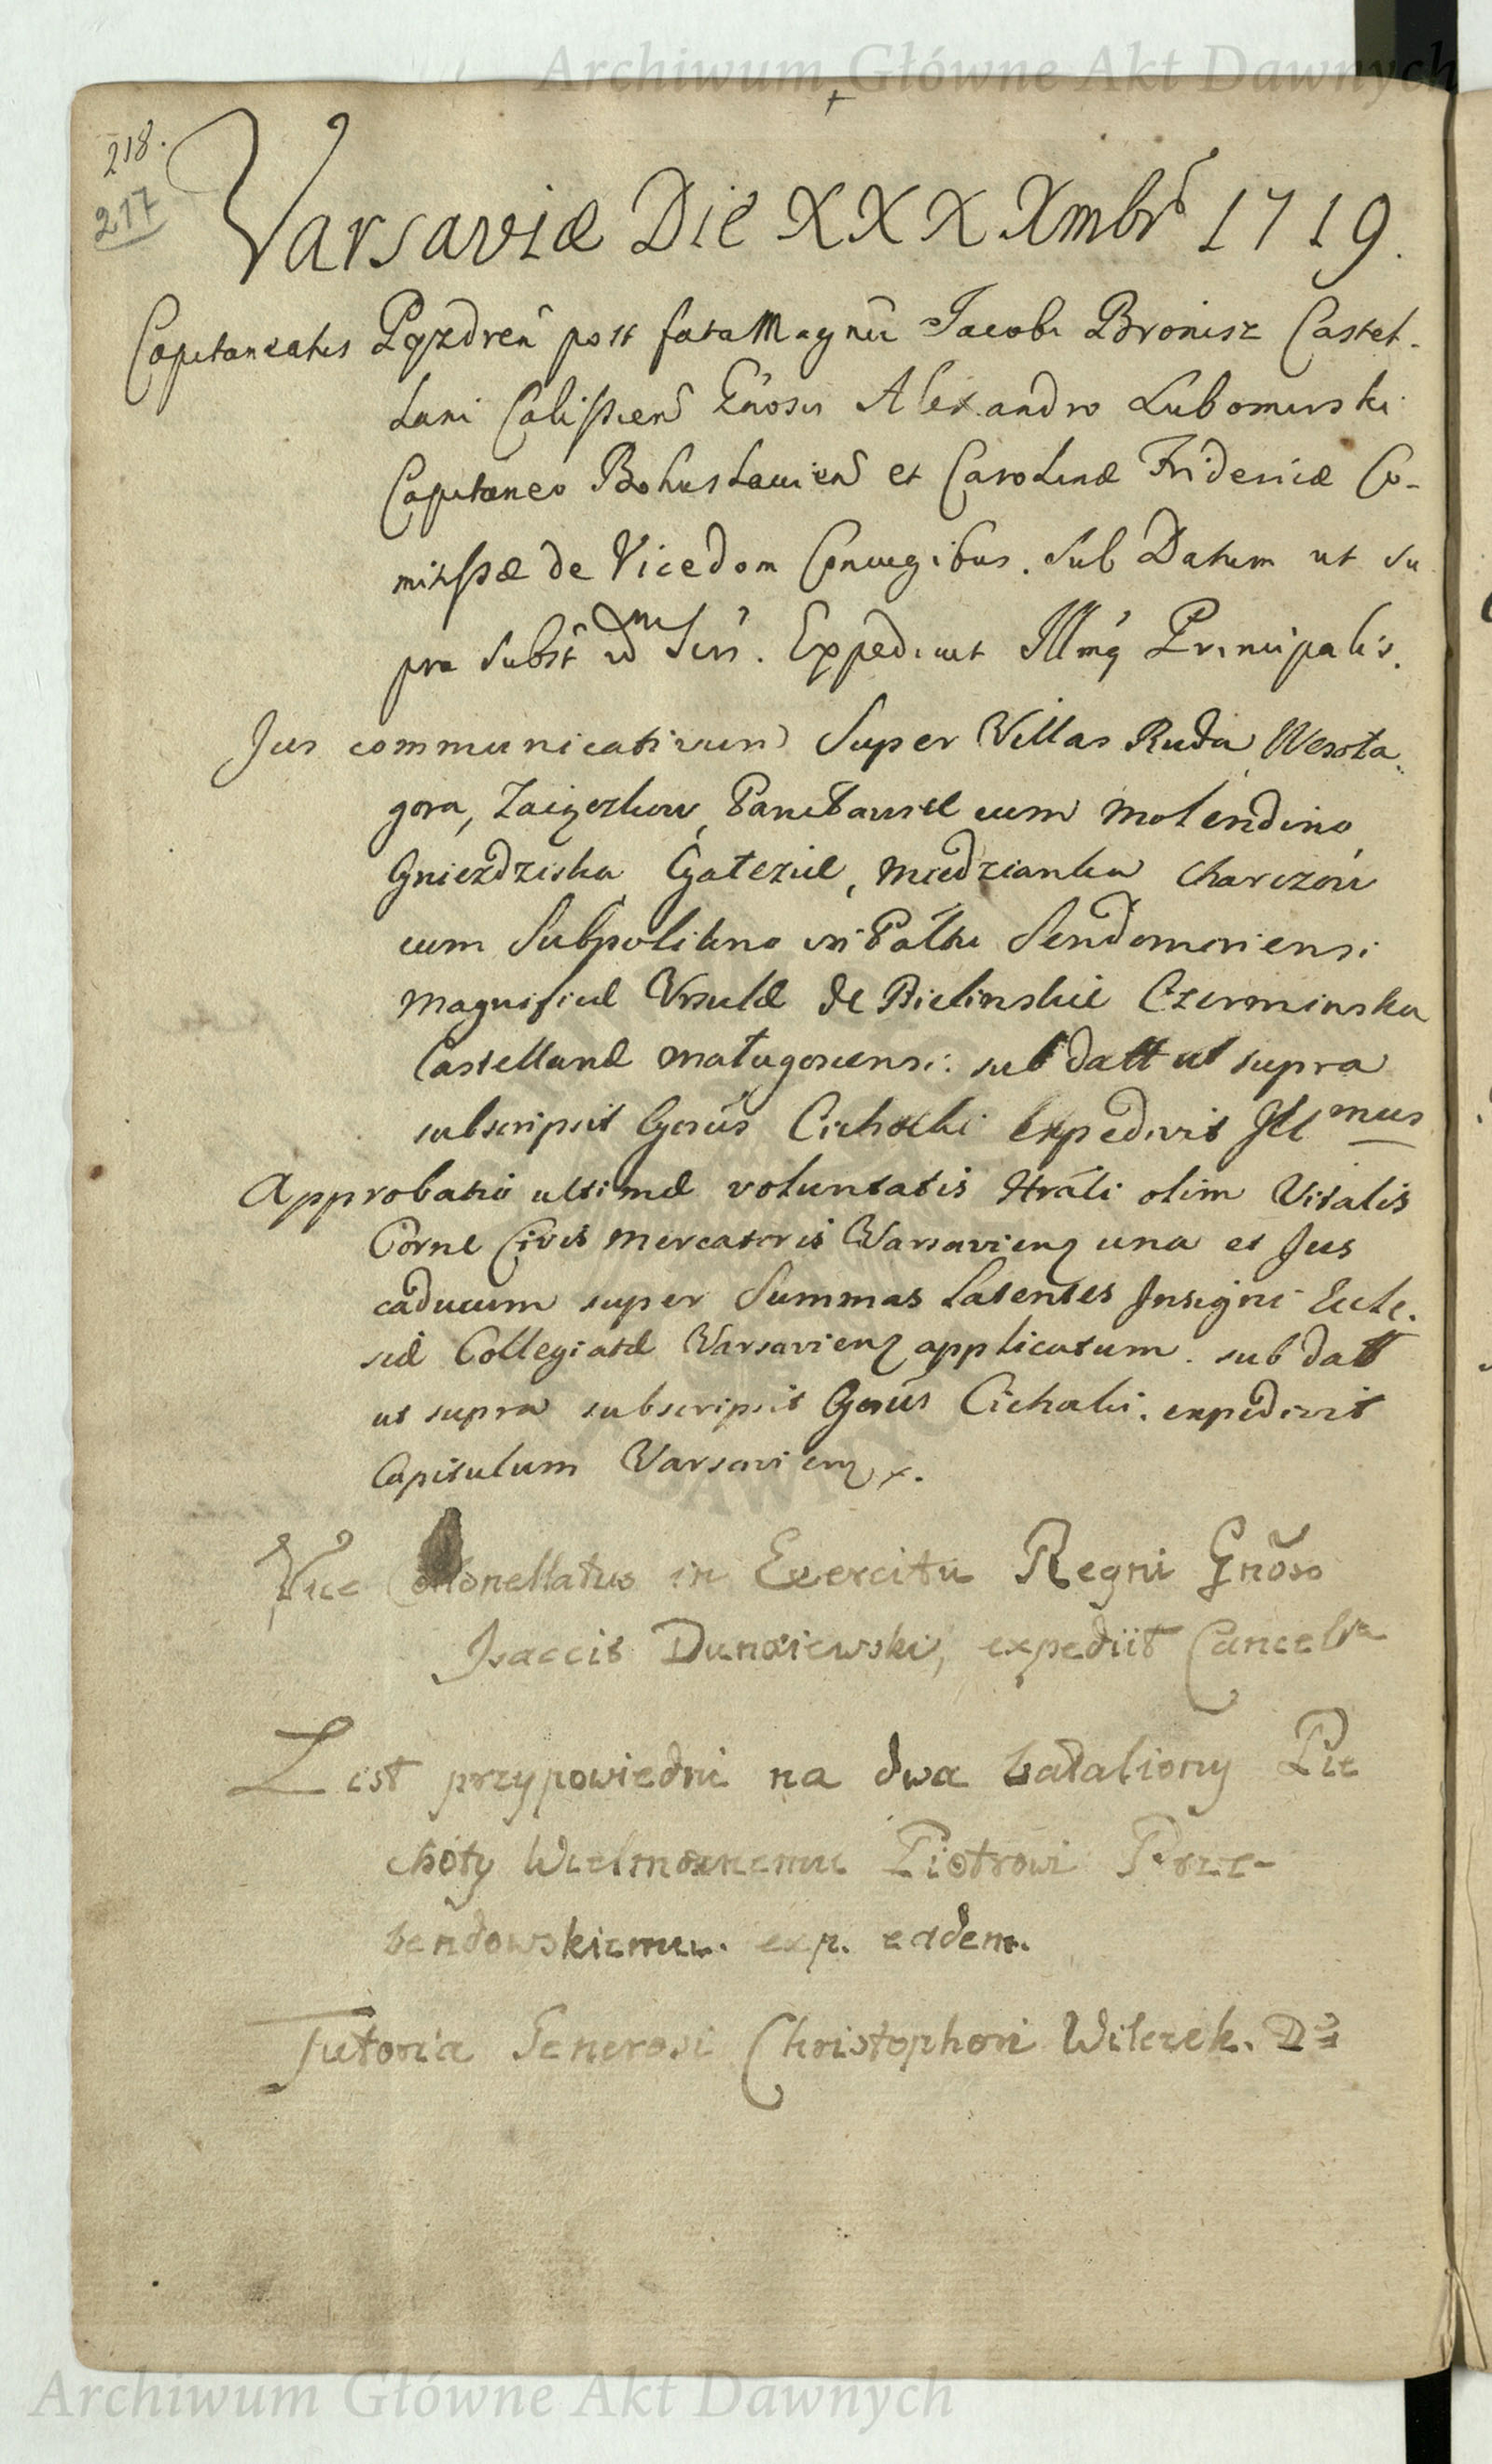 Archiwum Główne Akt Dawnych
218.
217
Varsaviæ Die XXX Xmbr 1719.
Capitaneatus Pyzdreń post fata Magnci Jacobi Bronisz Castel-
lani Calissien Gnoso Alexandro Lubomirski
Capitaneo Bohuslavien et Carolinæ Fridericæ Co-
mitissæ de Vicedom Conjugibus. Sub Datum ut su
pra Subst Expedivit Illmq Principalis.
Jus communicativum Super Villas Ruda, Wesoła
gora, Zaięczkow, cum Molendino
Gniezdziska Gałezice, Miedzianka Charczów
cum Subpolitno in Pałtu Sendomiriensi
Magnificæ Ursulæ de Bielinskie Czerminska
Castellanæ Małogoscensi: sub datt ut supra
subscripsit Gnsus Cichocki expedivit Ill mus
Approbatio ultimæ voluntatis olim Vitalis
Corne Civis Mercatoris Warsavienz una et Jus
caducum super Summas Latentes Insigni Eccle.
siæ Collegiatæ Warsavienz applicatum. sub datt
ut supra subscripsit Gnsus Cichocki. expedivit
Capitulum Warsavienz x.
Vice Collonellatus in Exercitu Regni Gnoso
Isaccis Dunaiewski, expediit Cancelra
List przypowiedni na dwa bataliony Pie
choty Wielmoznemu Piotrowi Prze-
bendowskiemu. exp. eadem.
Tutoria Generosi Christophori Wilczek. Da
Archiwum Główne Akt Dawnych